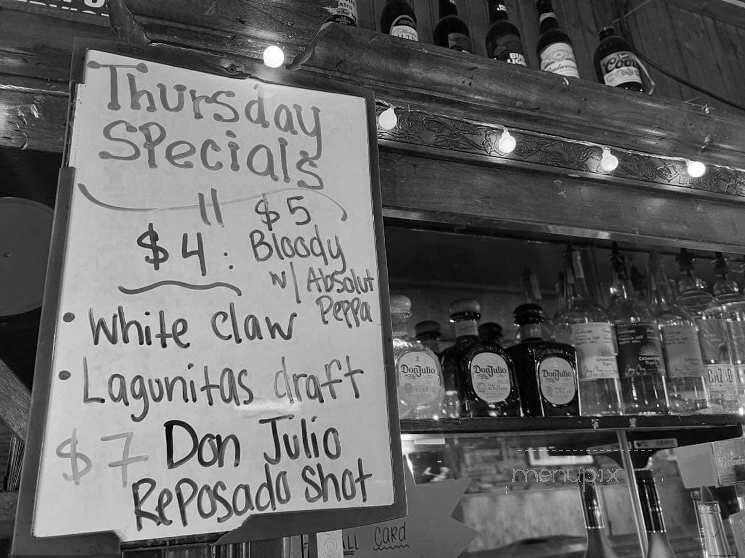 Thursday
Specials
$5
$4: Bloody
w/ Absolut
Peppa
• White Claw
• Lagunitas draft
$7 Don Julio
Reposado Shot
Don Julio
Don Julio
Don Julio
Coors
menupix
CARD